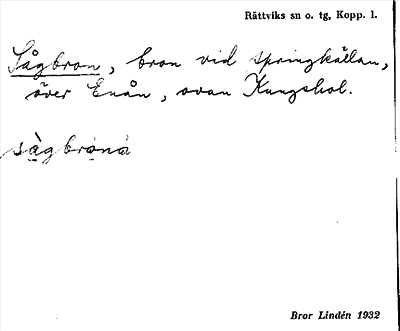 Rättviks sn o. tg, Kopp. l.
Sågbron, bron vid springkällan,
över Enån, ovan Kungshol.
sàgbrǫnȧ
Bror Lindén 1932